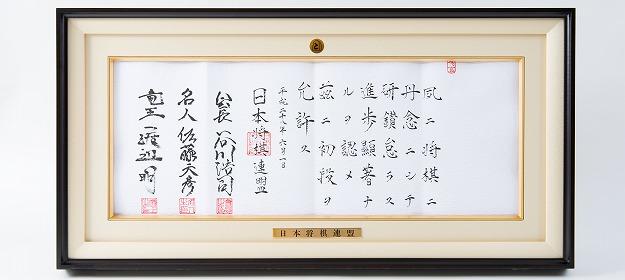 夙ニ将棋ニ
丹念ニシテ
研鑽怠ラス
進歩顯著ナ
ルヲ認メ
茲ニ初段ヲ
允許ス
平成二十八年六月一日
日本将棋連盟
会長 谷川浩司
名人 佐藤天彦
竜王 渡辺明
日本将棋連盟